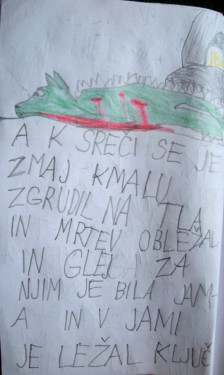 A K SREČI SE JE
ZMAJ KMALU
ZGRUDIL NA TLA
IN MRTEV OBLEŽAL
IN GLEJ ZA
NJIM JE BILA JAMA
A IN V JAMI
JE LEŽAL KLJUČ